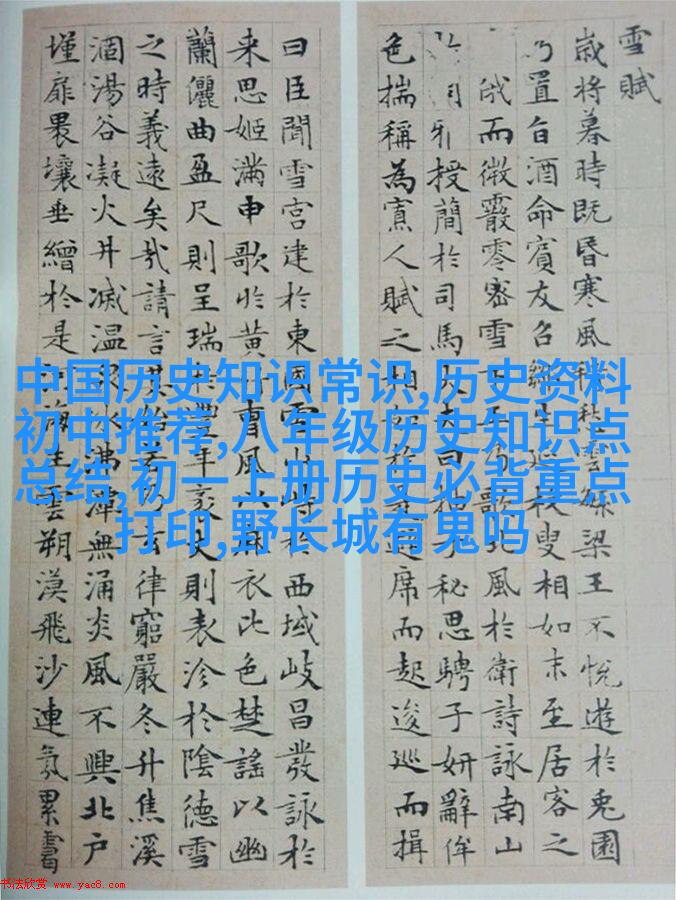 雪賦
歲將暮時既昏寒風雲梁王不悅遊於兔園
置旨酒命賓友召生延枚叟相如末至居客之
俄而微霰零密雪下王乃歌北風於衛詩詠南山
雅授簡於司馬大夫曰抽子秘思騁子妍辭侔
色揣稱為寡人賦之相如於是避席而起逡巡而揖
曰臣聞雪宮建於東國雪山峙於西域岐昌發詠於
来思姬滿申歌於黃曹風以麻衣比色楚謠以幽
蘭儷曲盈尺則呈瑞於豐年袤丈則表沴於陰德雪
之時義遠矣哉請言其始若乃玄律窮嚴冬升焦溪
涸湯谷凝火井滅温泉冰沸潭無涌炎風不興北户
墐扉壤垂繒於是河海生雲朔漠飛沙連氛累靄
中国历史知识常识,历史资料
初中推荐,八年级历史知识点
总结,初一上册历史必背重点
打印,野长城有鬼吗
书法欣赏 www.yac8.com